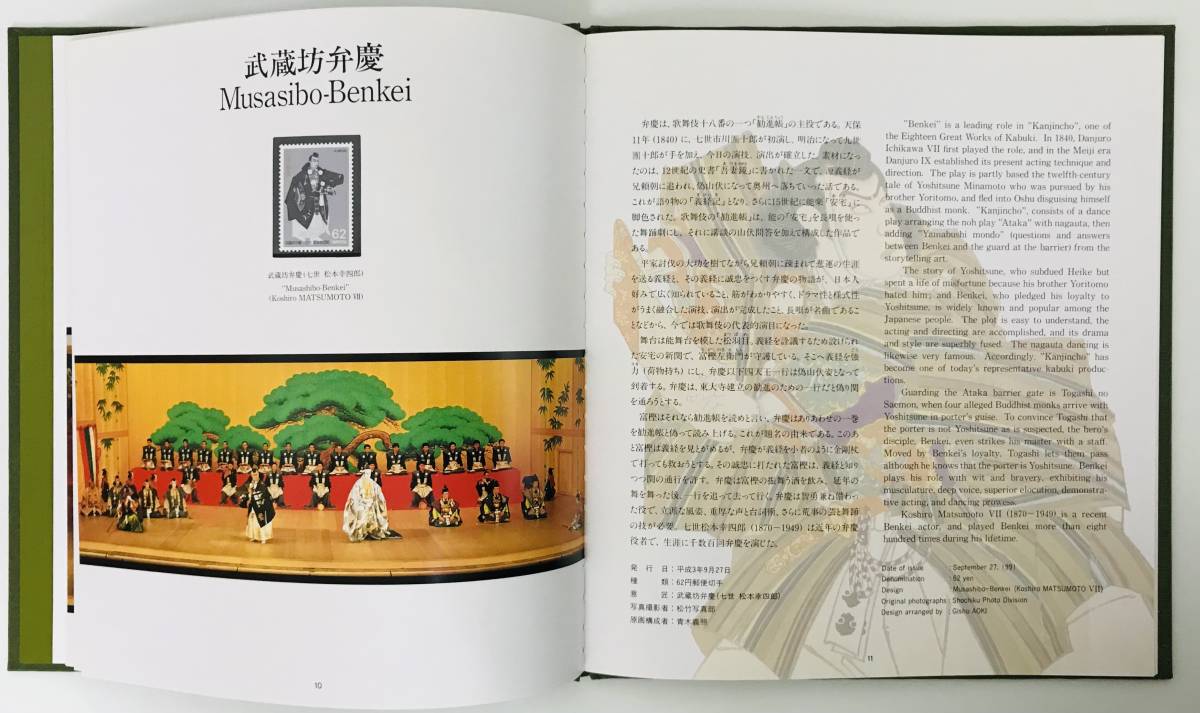 武蔵坊弁慶
Musasibo-Benkei
62
武蔵坊弁慶(七世 松本幸四郎)
"Musashibo-Benkei"
(Koshiro MATSUMOTO Ⅶ)
10
弁慶は、歌舞伎十八番の一つ「勧進帳」の主役である。天保
11年(1840)に、七世市川團十郎が初演し、明治になって九世
團十郎が手を加え、今日の演技、演出が確立した。素材になっ
たのは、12世紀の史書「吾妻鏡」に書かれた一文で、源義経が
兄頼朝に追われ、偽山伏になって奥州へ落ちていった話である。
これが語り物の「義経記」となり、さらに15世紀に能楽「安宅」に
脚色された。歌舞伎の「勧進帳」は、能の「安宅」を長唄を使っ
た舞踊劇にし、それに講談の山伏問答を加えて構成した作品で
ある。
平家討伐の大功を樹てながら兄頼朝に疎まれて悲運の生涯
を送る義経と、その義経に忠誠をつくす弁慶の物語が、日本人
好みで広く知られていること、筋がわかりやすく、ドラマ性と様式性
がうまく融合した演技、演出が完成したこと、長唄が名曲であるこ
となどから、今では歌舞伎の代表的演目になった。
舞台は能舞台を模した松羽目。義経を詮議するため設けられ
た安宅の新関で、富樫左衛門が守護している。そこへ義経を強
力(荷物持ち)にし、弁慶以下四天王一行は偽山伏姿となって
到着する。弁慶は、東大寺建立の勧進のための一行だと偽り関
を通ろうとする。
富樫はそれなら勧進帳を読めと言い、弁慶はありあわせの一巻
を勧進帳と偽って読み上げる。これが題名の由来である。このあ
と富樫は義経を見とがめるが、弁慶が義経を小者のように金剛杖
で打っても救おうとする。その忠誠に打たれた富樫は、義経と知り
つつ関の通行を許す。弁慶は富樫の振舞う酒を飲み、延年の
舞を舞った後、一行を追って去って行く。弁慶は智勇兼ね備わっ
た役で、立派な風姿、重厚な声と台詞術、さらに荒事の芸と舞踊
の技が必要。七世松本幸四郎(1870-1949)は近年の弁慶
役者で、生涯に千数百回弁慶を演じた。
発 行 日:平成3年9月27日
種 類:62円郵便切手
意 匠:武蔵坊弁慶(七世 松本幸四郎)
写真撮影者:松竹写真部
原画構成者:青木義照
"Benkei" is a leading role in "Kanjincho", one of
the Eighteen Great Works of Kabuki. In 1840, Danjuro
Ichikawa VII first played the role, and in the Meiji era
Danjuro IX established its present acting technique and
direction. The play is partly based the twelfth-century
tale of Yoshitsune Minamoto who was pursued by his
brother Yoritomo, and fled into Oshu disguising himself
as a Buddhist monk. "Kanjincho", consists of a dance
play arranging the noh play "Ataka" with nagauta, then
adding "Yamabushi mondo" (questions and answers
between Benkei and the guard at the barrier) from the
storytelling art.
The story of Yoshitsune, who subdued Heike but
spent a life of misfortune because his brother Yoritomo
hated him; and Benkei, who pledged his loyalty to
Yoshitsune, is widely known and popular among the
Japanese people. The plot is easy to understand, the
acting and directing are accomplished, and its drama
and style are superbly fused. The nagauta dancing is
likewise very famous. Accordingly, "Kanjincho" has
become one of today's representative kabuki produc-
tions.
Guarding the Ataka barrier gate is Togashi no
Saemon, when four alleged Buddhist monks arrive with
Yoshitsune in porter's guise. To convince Togashi that
the porter is not Yoshitsune as is suspected, the hero's
disciple, Benkei, even strikes his master with a staff.
Moved by Benkei's loyalty, Togashi lets them pass
although he knows that the porter is Yoshitsune. Benkei
plays his role with wit and bravery, exhibiting his
musculature, deep voice, superior elocution, demonstra-
tive acting, and dancing prowess.
Koshiro Matsumoto VII (1870-1949) is a recent
Benkei actor, and played Benkei more than eight
hundred times during his lifetime.
Date of issue : September 27, 1991
Denomination : 62 yen
Design : Musashibo-Benkei (Koshiro MATSUMOTO Ⅶ)
Original photographs : Shochiku Photo Division
Design arranged by : Gishu AOKI
11